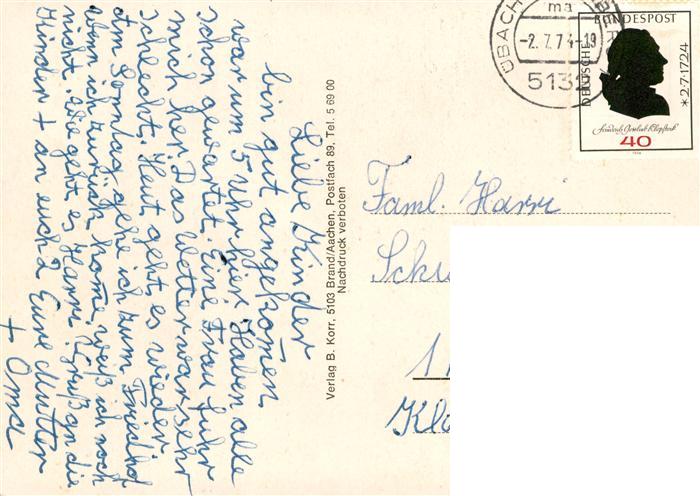 Liebe Kinder
bin gut angekomen
war um 5 Uhr hier. Haben alle
schon gewartet. Eine Frau fuhr
mich her. Das Wetter war sehr
schlecht. Heut geht es wieder.
Am Sonntag gehe ich zum Friedhof
wenn ich zurück kome, weiß ich noch
nicht. Wie geht es Harri. Gruß an die
Kinder + an euch 2 Eure Mutter
+ Oma
Verlag B. Korr, 5103 Brand/Aachen, Postfach 89, Tel. 5 69 00
Nachdruck verboten
ÜBACH
ma
-2.7.74-19
5132
DEUTSCHE BUNDESPOST
*2.7.1724
Friedrich Gottlieb Klopstock
40
Faml. Harri
Sch
1
Kl